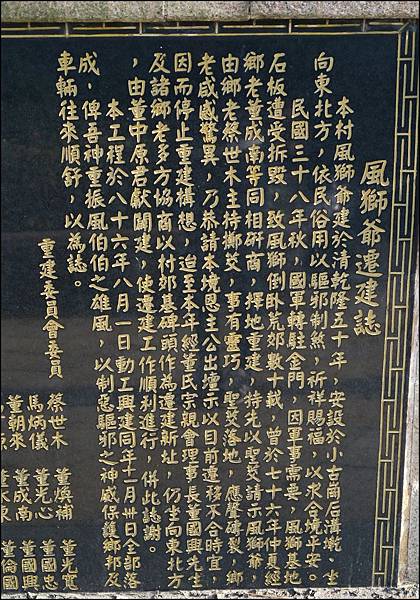 風獅爺遷建誌
本村風獅爺建於清乾隆五十年，安設於小古崗后溝墩、坐
向東北方，依民俗用以驅邪制煞，祈祥賜福，以求合境平安。
民國三十八年秋，國軍轉駐金門，因軍事需要，風獅基地
石板遭受拆毀，致風獅倒卧荒郊數十載，曾於七十六年仲夏經
鄉老董成南等同相研商，擇地重建，特先以聖筊請示風獅爺，
由鄉老蔡世木主持擲筊，事有靈巧，聖筊落地，應聲碎裂，鄉
老咸感驚異，乃恭請本境恩主公出壇示以目前遷移不合時宜，
因而停止重建構想，迨至本年經董氏宗親會理事長董國興先生
及諸鄉老多方協商以村郊基碑頭作為遷建新址，仍坐向東北方
，由董中原君獻鬮建，使遷建工作順利進行，併此誌謝。
本工程於八十六年八月一日動工興建同年十一月卅日全部落
成，俾吾神重振風伯伯之雄風，以制惡驅邪之神威保護鄉邦及
車輛往來順舒，以為誌。
重建委員會委員
蔡世木 董煥補 董光寬
馬炳儀 董光心 董國忠
董朝來 董成南 董國興
董倫國